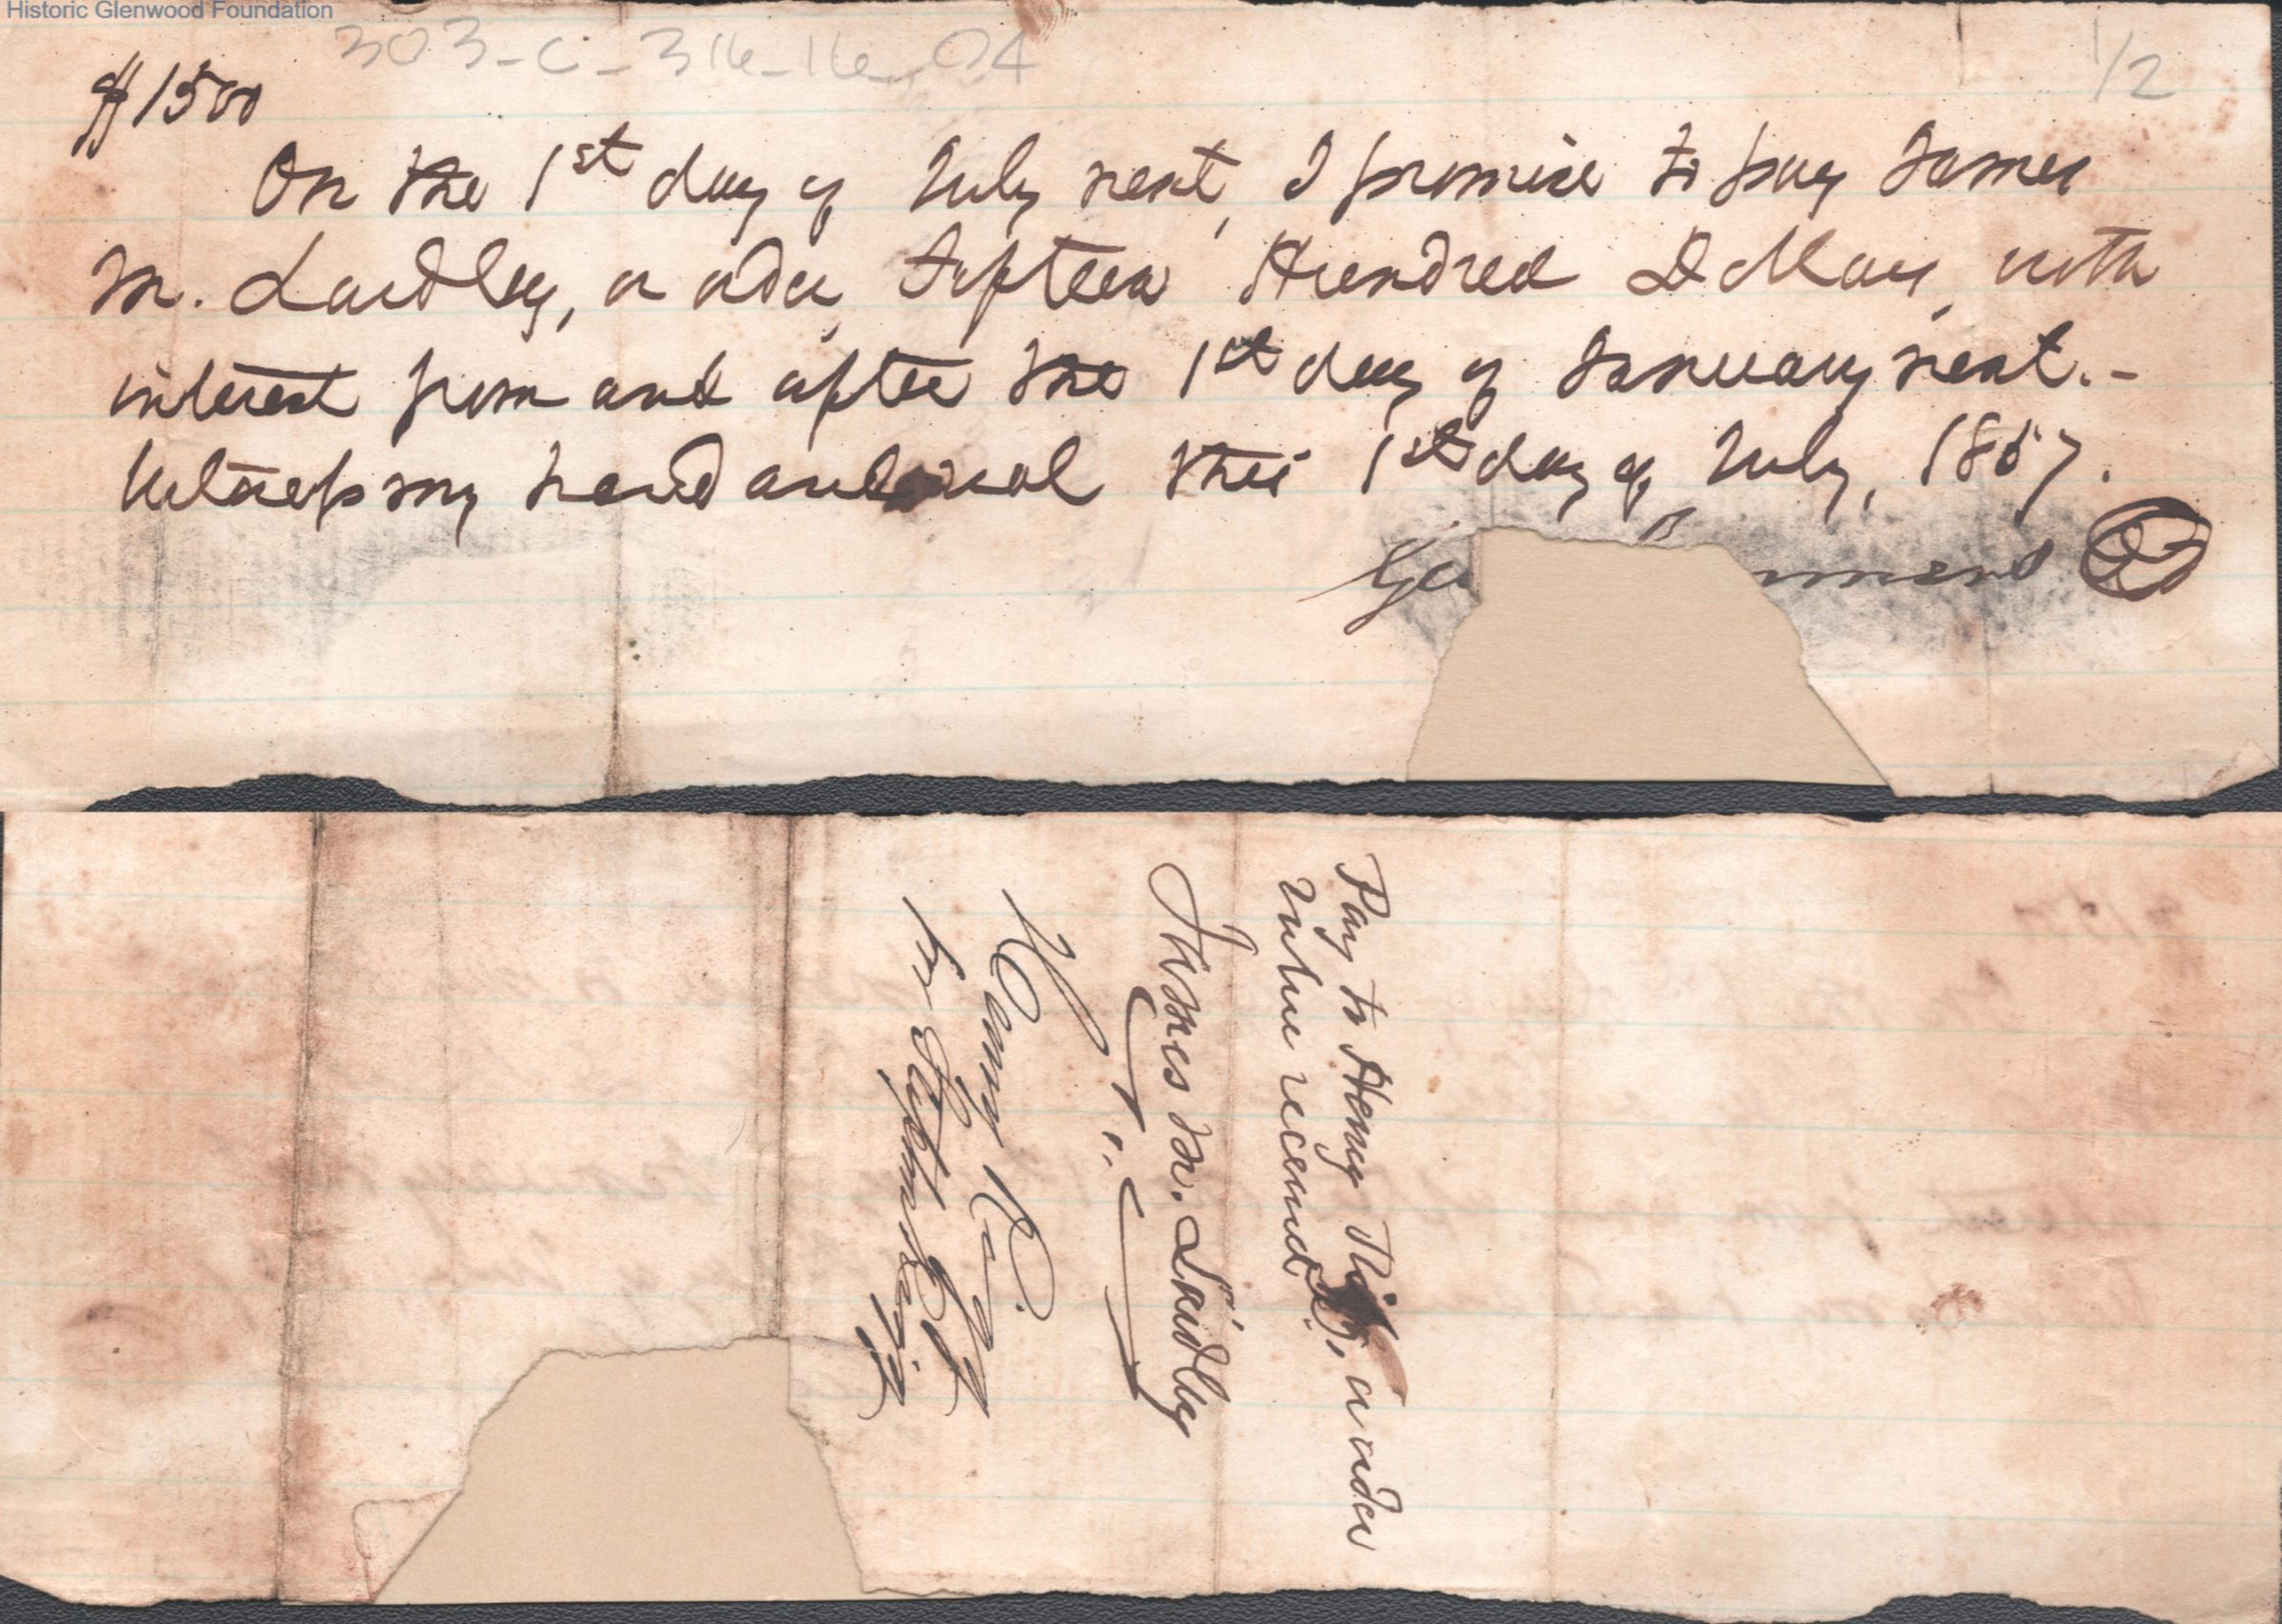 Historic Glenwood Foundation
303-C-316-16-04
1/2
$1500
On the 1st day of July next, I promise to pay James
M. Laidley, or order, Fifteen Hundred Dollars, with
interest from and after the 1st day of January next.-
Witness my hand and seal this 1st day of July, 1857.
Geo
Pay to Henry or order
Value received
James M. Laidley
Henry